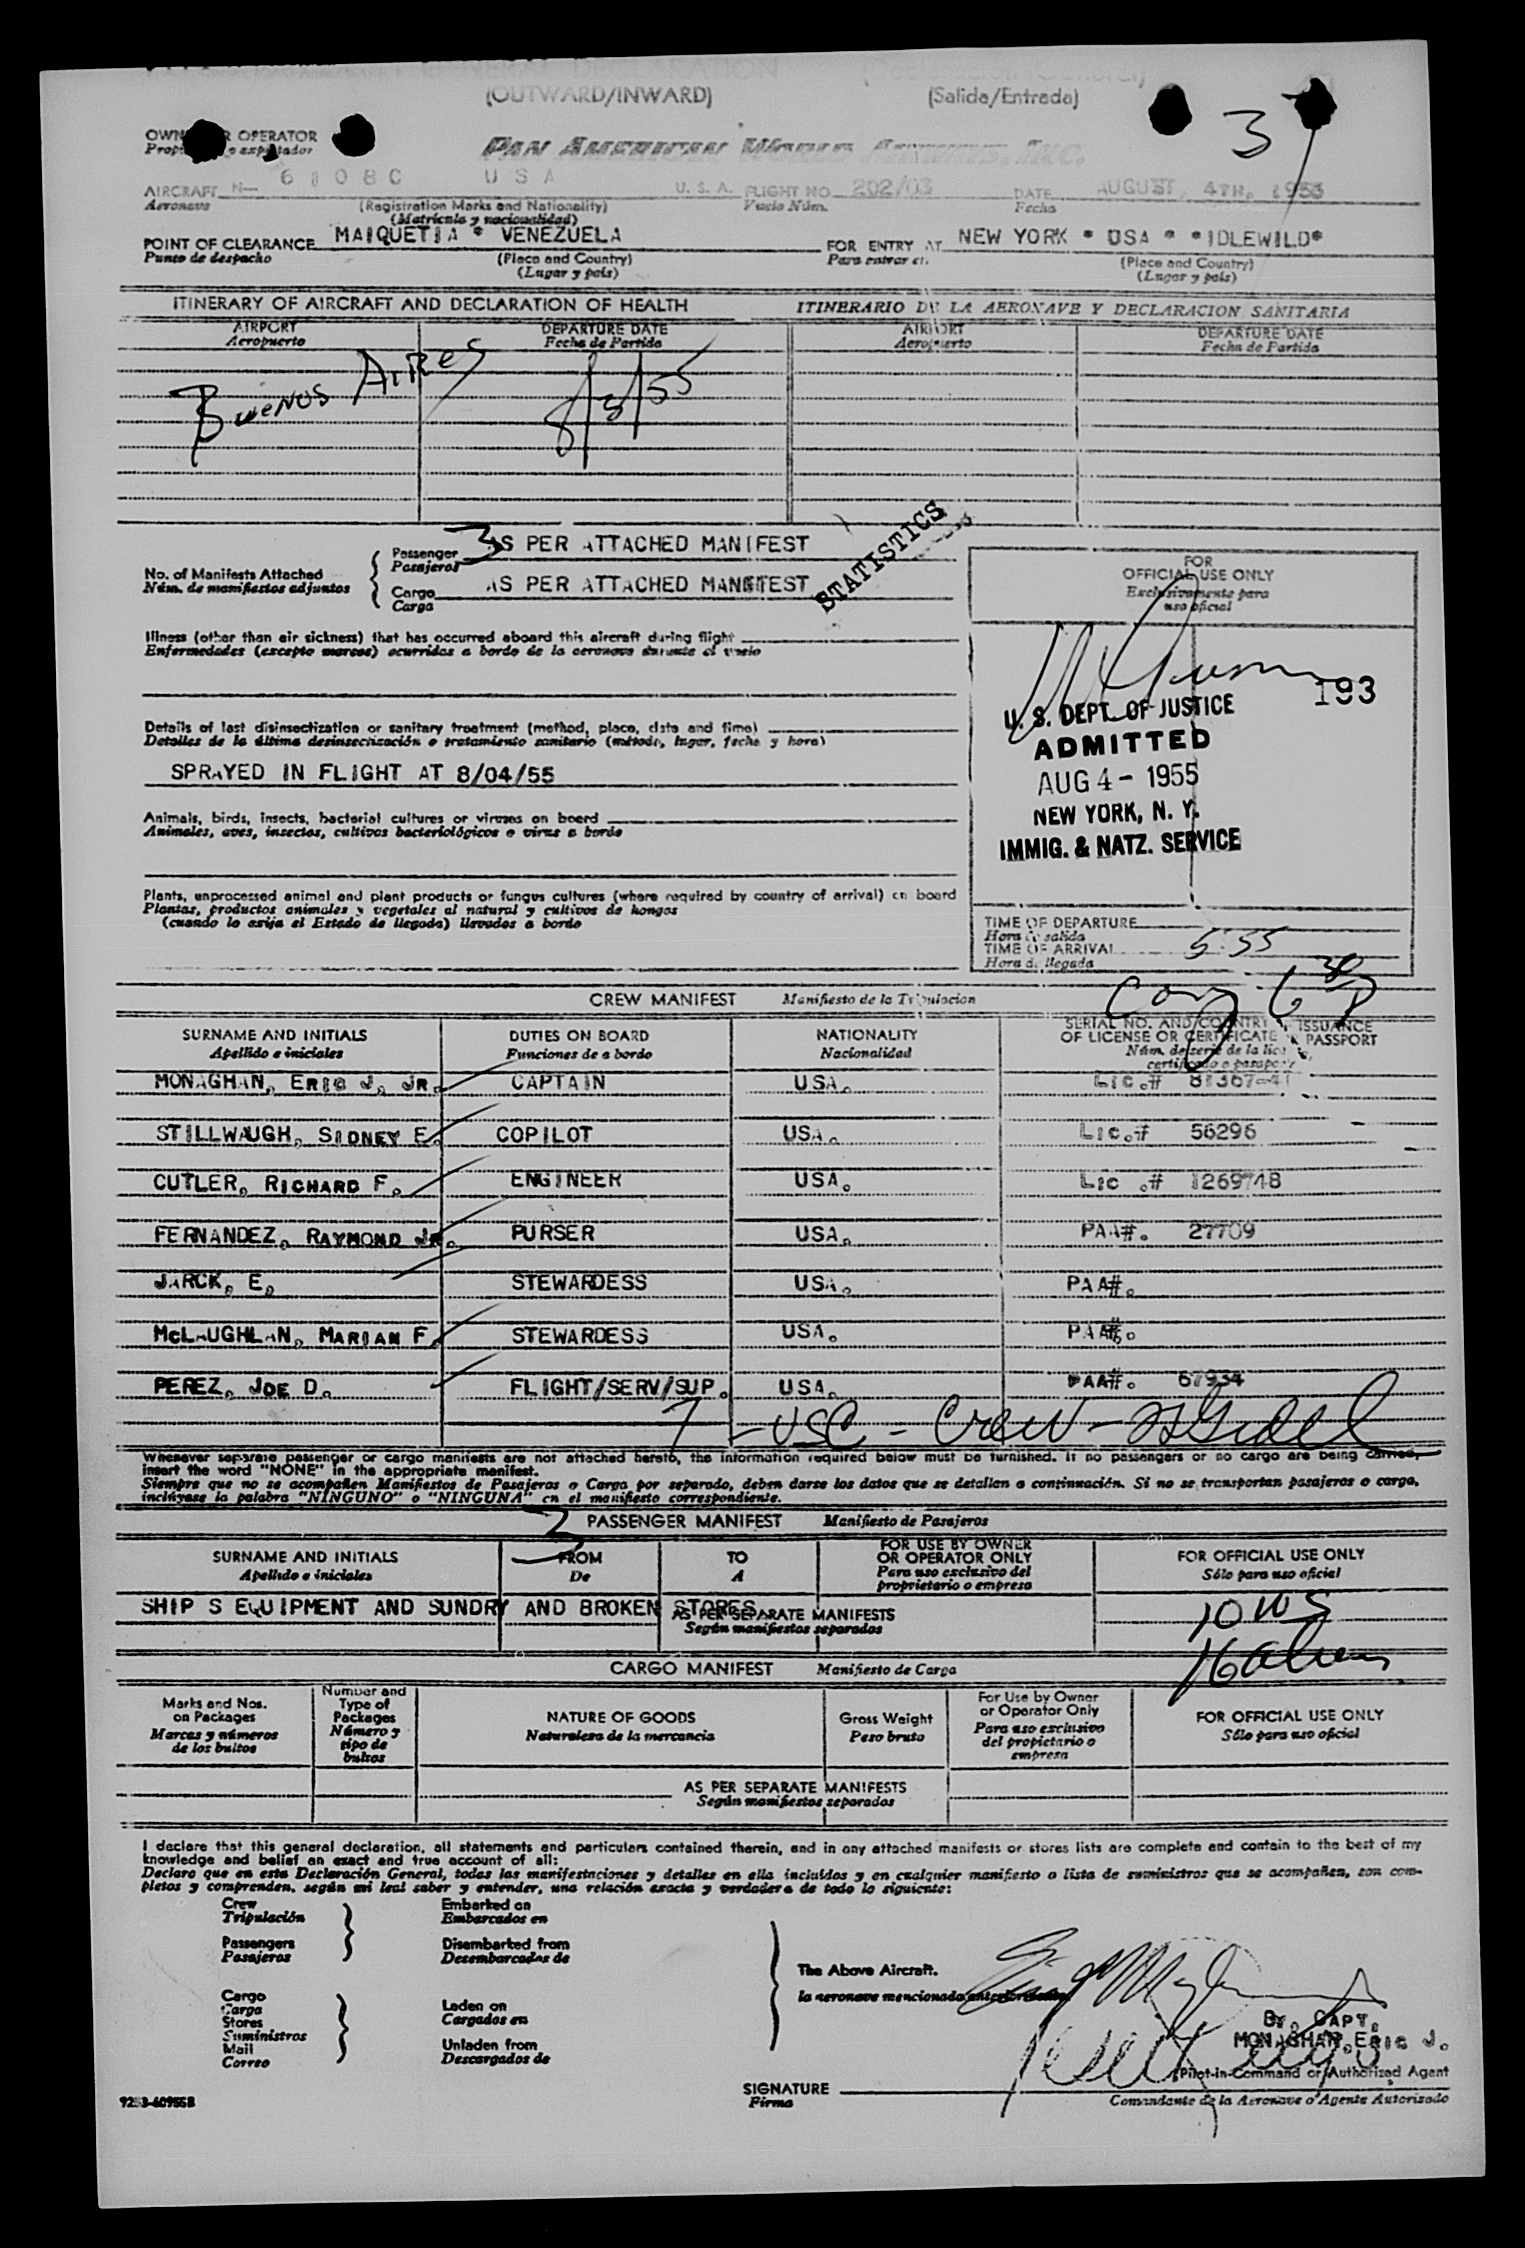 (OUTWARD/INWARD) (Salida/Entrada)
3
OPERATOR
PAN AMERICAN WORLD AIRWAYS, INC.
AIRCRAFT N- 6108C USA U. S. A. FLIGHT NO. 202/03 DATE AUGUST, 4TH, 1955
Aeronave (Registration Marks and Nationality) Vuelo Núm. Fecha
(Matrícula y nacionalidad)
POINT OF CLEARANCE MAIQUETIA * VENEZUELA FOR ENTRY AT NEW YORK * USA * *IDLEWILD*
Punto de despacho (Place and Country) Para entrar en (Place and Country)
(Lugar y país) (Lugar y país)
ITINERARY OF AIRCRAFT AND DECLARATION OF HEALTH ITINERARIO DE LA AERONAVE Y DECLARACION SANITARIA
AIRPORT DEPARTURE DATE AIRPORT DEPARTURE DATE
Aeropuerto Fecha de Partida Aeropuerto Fecha de Partida
Buenos Aires 8/3/55
3 AS PER ATTACHED MANIFEST STATISTICS
Passenger
Pasajeros
No. of Manifests Attached
Núm. de manifiestos adjuntos
Cargo AS PER ATTACHED MANIFEST
Carga
FOR
OFFICIAL USE ONLY
Exclusivamente para
uso oficial
Illness (other than air sickness) that has occurred aboard this aircraft during flight
Enfermedades (excepto mareos) ocurridas a bordo de la aeronave durante el vuelo
193
U. S. DEPT. OF JUSTICE
ADMITTED
AUG 4 - 1955
NEW YORK, N. Y.
IMMIG. & NATZ. SERVICE
Details of last disinsectization or sanitary treatment (method, place, date and time)
Detalles de la última desinsectización o tratamiento sanitario (método, lugar, fecha y hora)
SPRAYED IN FLIGHT AT 8/04/55
Animals, birds, insects, bacterial cultures or viruses on board
Animales, aves, insectos, cultivos bacteriológicos o virus a bordo
Plants, unprocessed animal and plant products or fungus cultures (where required by country of arrival) on board
Plantas, productos animales y vegetales al natural y cultivos de hongos
(cuando lo exija el Estado de llegada) llevados a bordo
TIME OF DEPARTURE
Hora de salida
TIME OF ARRIVAL 5:55
Hora de llegada
CREW MANIFEST Manifiesto de la Tripulacion
SURNAME AND INITIALS DUTIES ON BOARD NATIONALITY SERIAL NO. AND COUNTRY OF ISSUANCE
OF LICENSE OR CERTIFICATE OR PASSPORT
Apellido e iniciales Funciones de a bordo Nacionalidad Núm. de serie de la lic
certificado o pasaporte
MONAGHAN, ERIC J. JR. CAPTAIN USA. LIC.# 81367-41
STILLWAUGH, SIDNEY E. COPILOT USA. LIC.# 56296
CUTLER, RICHARD F. ENGINEER USA. LIC .# 1269748
FERNANDEZ, RAYMOND JR. PURSER USA. PAA#. 27709
JARCK, E. STEWARDESS USA. PAA#.
McLAUGHLAN, MARIAN F. STEWARDESS USA. PAA#.
PEREZ, JOE D. FLIGHT/SERV/SUP. USA. PAA#. 67934
7 - USC - Crew -
Whenever separate passenger or cargo manifests are not attached hereto, the information required below must be furnished. If no passengers or no cargo are being carried,
insert the word "NONE" in the appropriate manifest.
Siempre que no se acompañen Manifiestos de Pasajeros o Carga por separado, deben darse los datos que se detallan a continuación. Si no se transportan pasajeros o carga,
inclúyase la palabra "NINGUNO" o "NINGUNA" en el manifiesto correspondiente.
3 PASSENGER MANIFEST Manifiesto de Pasajeros
SURNAME AND INITIALS FROM TO FOR USE BY OWNER
OR OPERATOR ONLY FOR OFFICIAL USE ONLY
Apellido e iniciales De A Para uso exclusivo del
propietario o empresa Sólo para uso oficial
SHIP S EQUIPMENT AND SUNDRY AND BROKEN STORES
AS PER SEPARATE MANIFESTS
Según manifiestos separados
CARGO MANIFEST Manifiesto de Carga
Marks and Nos.
on Packages
Marcas y números
de los bultos
Number and
Type of
Packages
Número y
tipo de
bultos
NATURE OF GOODS
Naturaleza de la mercancia
Gross Weight
Peso bruto
For Use by Owner
or Operator Only
Para uso exclusivo
del propietario o
empresa
FOR OFFICIAL USE ONLY
Sólo para uso oficial
AS PER SEPARATE MANIFESTS
Según manifiestos separados
I declare that this general declaration, all statements and particulars contained therein, and in any attached manifests or stores lists are complete and contain to the best of my
knowledge and belief an exact and true account of all:
Declaro que en esta Declaración General, todas las manifestaciones y detalles en ella incluídos y en cualquier manifiesto o lista de suministros que se acompañen, son com-
pletos y comprenden, según mi leal saber y entender, una relación exacta y verdadera de todo lo siguiente:
Crew Embarked on
Tripulación Embarcados en
Passengers Disembarked from
Pasajeros Desembarcados de
The Above Aircraft.
la aeronave mencionada anteriormente
Cargo
Carga
Laden on
Stores Cargados en
Suministros
Mail Unladen from
Correo Descargados de
BY. CAPT.
MONAGHAN, ERIC J.
Pilot-in-Command or Authorized Agent
SIGNATURE
Firma Comandante de la Aeronave o Agente Autorizado